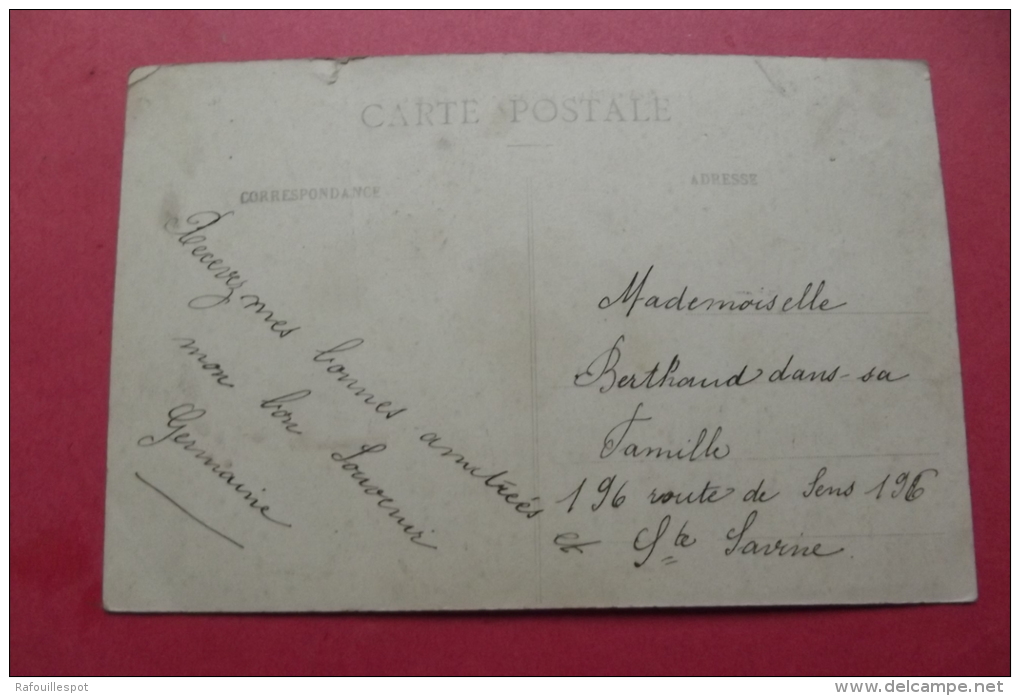 CARTE POSTALE
CORRESPONDANCE
ADRESSE
Recevez mes bonnes amitiées et
mon bon Souvenir
Germaine
Mademoiselle
Berthaud dans sa
Famille
196 route de Sens 196
Ste Savine
Rafouillespot
delcampe.net